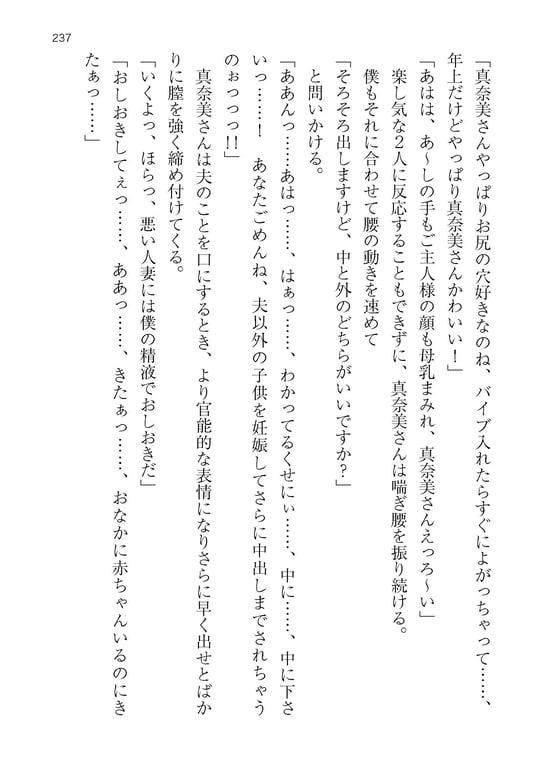 237
「真奈美さんやっぱりお尻の穴好きなのね、バイブ入れたらすぐによがっちゃって……、
年上だけどやっぱり真奈美さんかわいい！」
「あはは、あ～しの手もご主人様の顔も母乳まみれ、真奈美さんえっろ～い」
楽し気な２人に反応することもできずに、真奈美さんは喘ぎ腰を振り続ける。
僕もそれに合わせて腰の動きを速めて
「そろそろ出しますけど、中と外のどちらがいいですか？」
と問いかける。
「ああんっ……あはっ……、はぁっ……、わかってるくせにぃ……、中に……、中に下さ
いっ……！　あなたごめんね、夫以外の子供を妊娠してさらに中出しまでされちゃう
のぉっっっ!!」
真奈美さんは夫のことを口にするとき、より官能的な表情になりさらに早く出せとばか
りに膣を強く締め付けてくる。
「いくよっ、ほらっ、悪い人妻には僕の精液でおしおきだ」
「おしおきしてぇっ……、ああっ……、きたぁっ……、おなかに赤ちゃんいるのにき
たぁっ……」